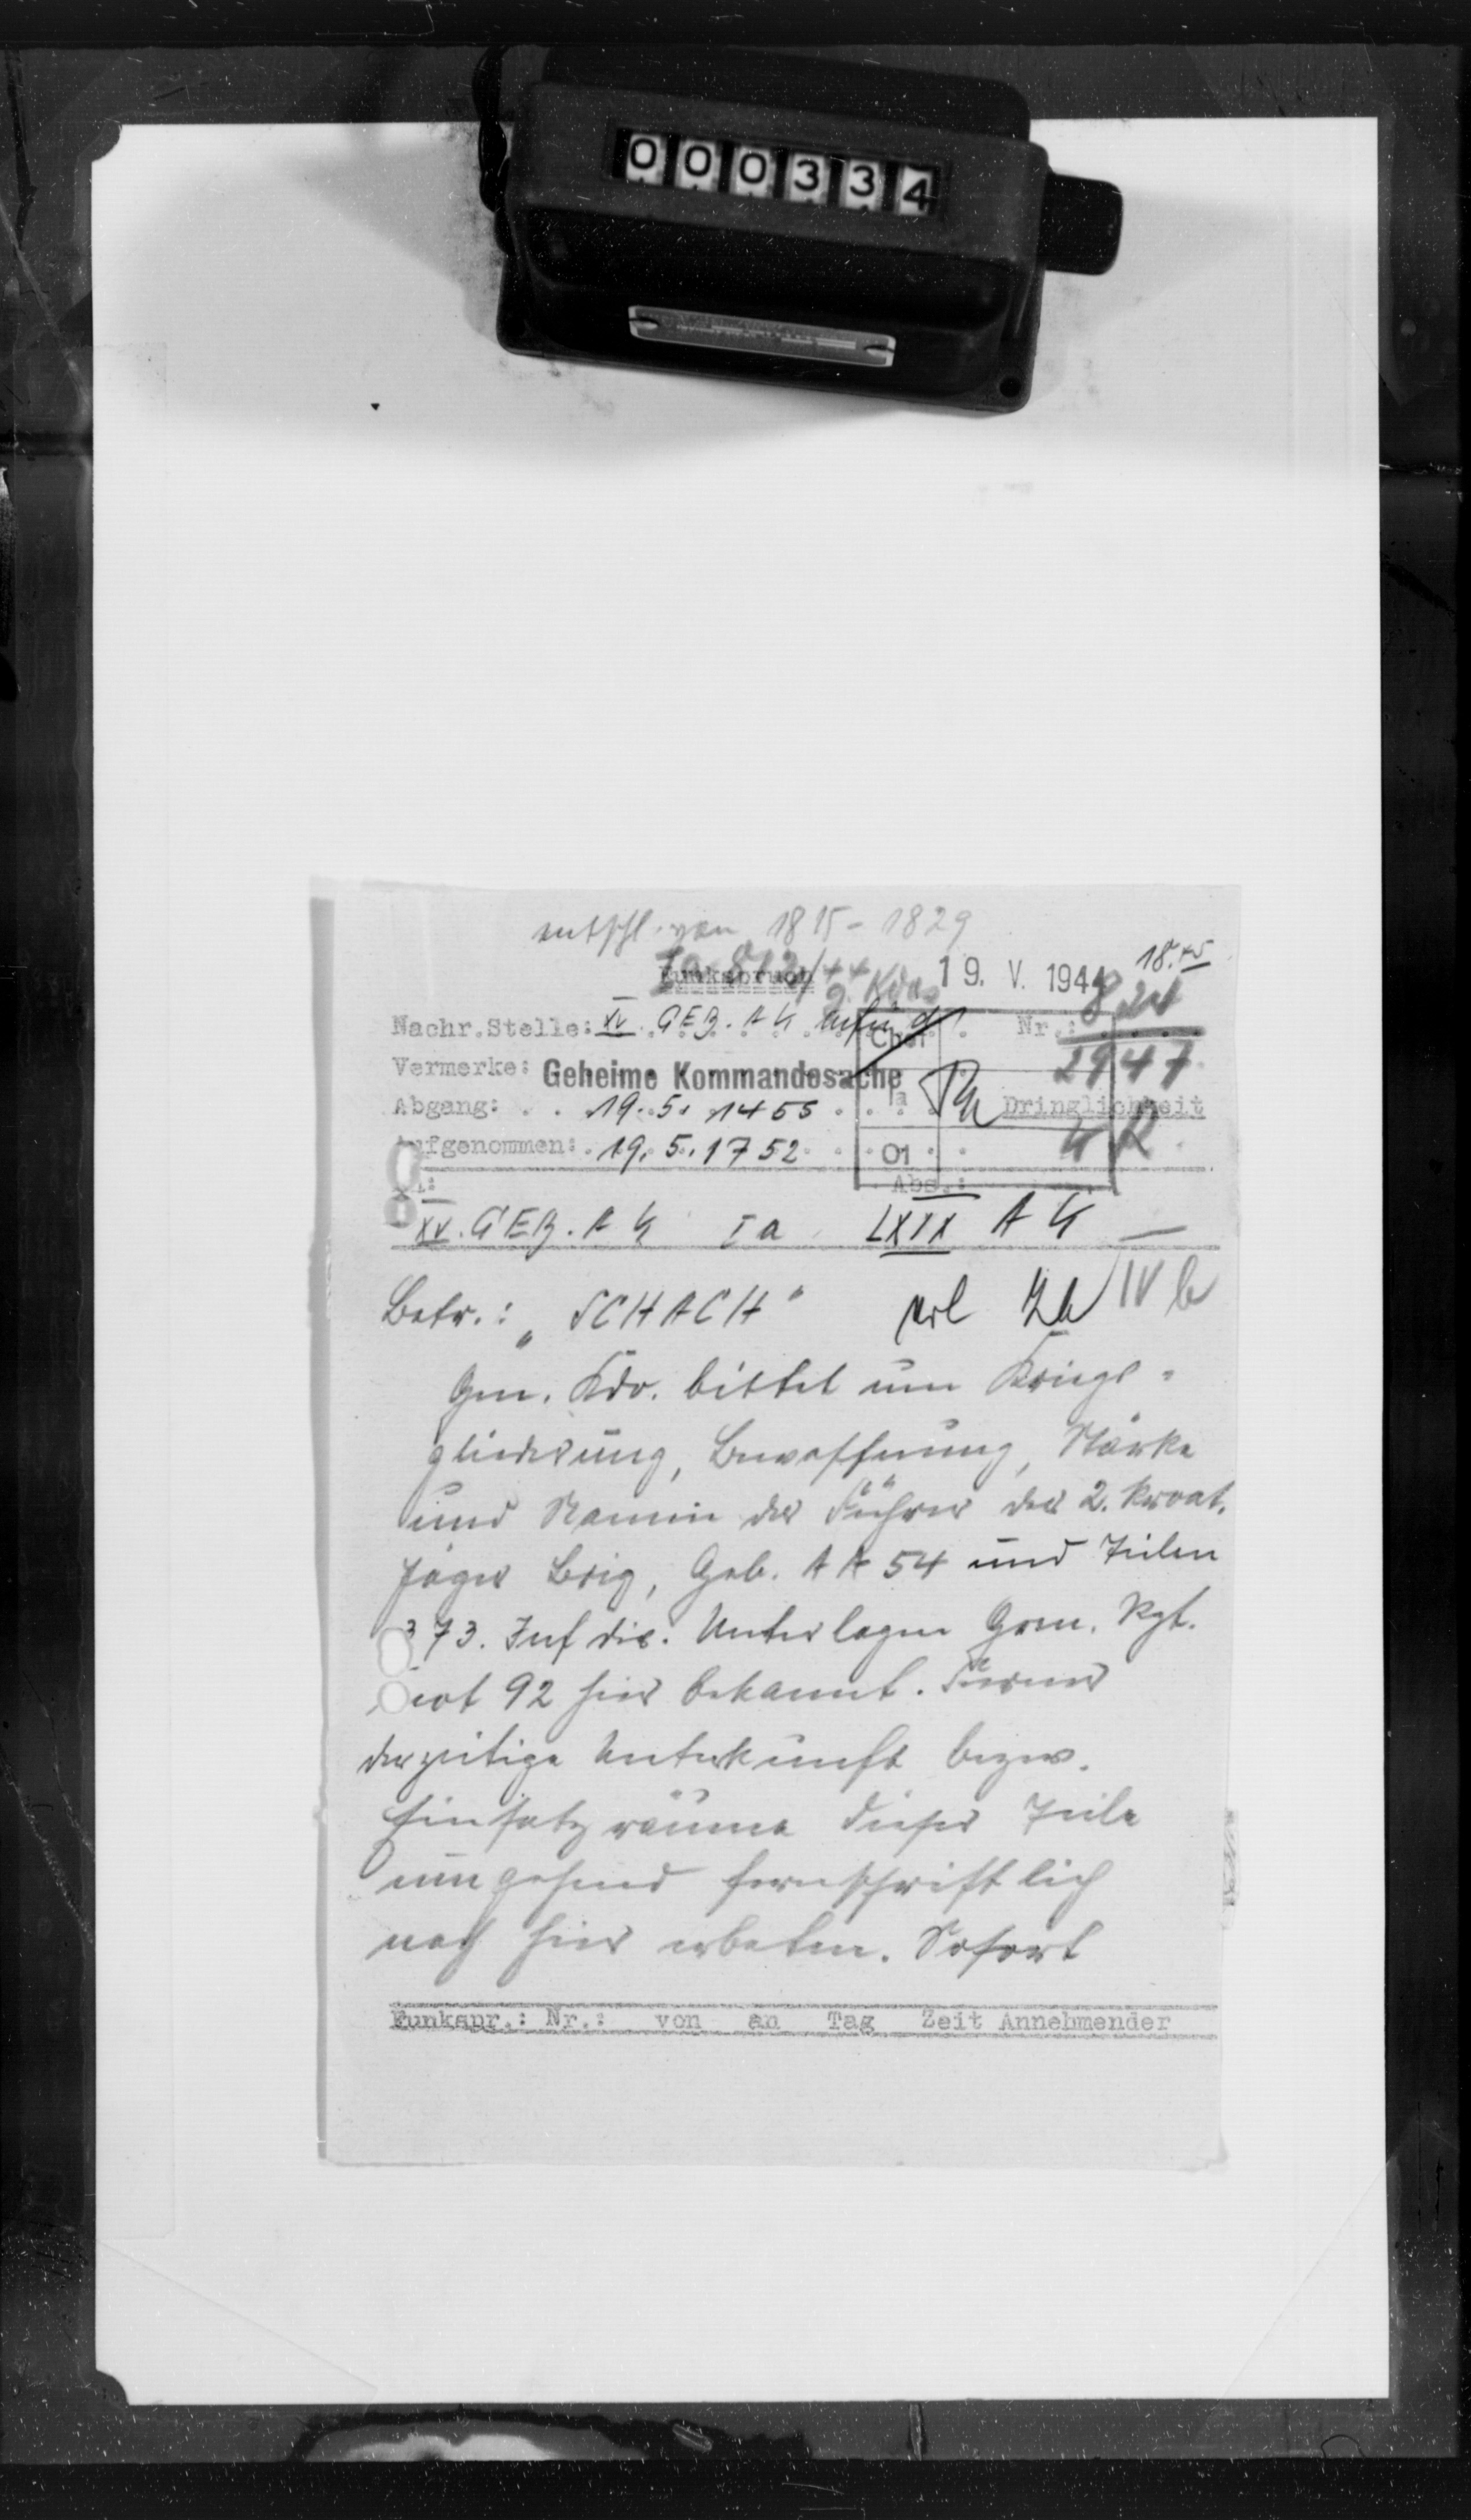 000334
entschl. von 1815 - 1829
Funkspruch
19. V. 1944
18.45
Nachr.Stelle: XV. GEB. A K
Chef
Nr.:
Vermerke: Geheime Kommandosache
2947
Abgang: 19.5. 1455
Ia
Dringlichkeit
Aufgenommen: 19.5. 1752
01
KR
An:
Abs.:
XV. GEB. A K Ia LXIX A K
Betr.: „SCHACH"
IV b
Gen. Kdo. bittet um Kriegs-
gliederung, Bewaffnung, Stärke
und Namen der Führer der 2. kroat.
Jäger Brig, Geb. A A 54 und Teilen
373. Inf div. Unterlagen Gren. Rgt.
mot 92 hier bekannt. Ferner
derzeitige Unterkunft bezw.
Einsatzräume dieser Teile
umgehend fernschriftlich
nach hier erbeten. Sofort
Funkspr.: Nr.: von an Tag Zeit Annehmender